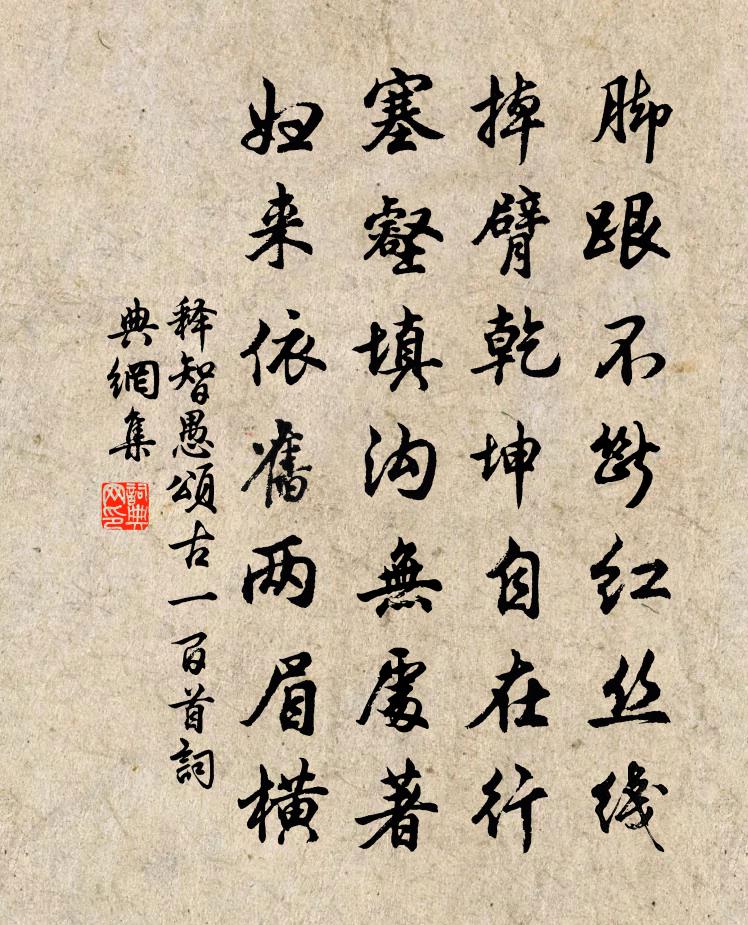 脚跟不断红丝线
掉臂乾坤自在行
塞壑填沟無處著
归来依舊两眉横
释智愚頌古一百首詞
典網集
詞典
网印